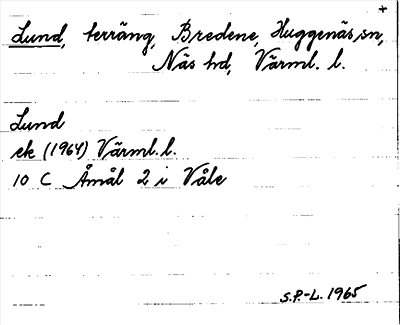 +
Lund, terräng, Bredene, Huggenäs sn,
Näs hd, Värml. l.
Lund
ek (1964) Värml. l.
10 C Åmål 2 i Våle
S.P.-L. 1965